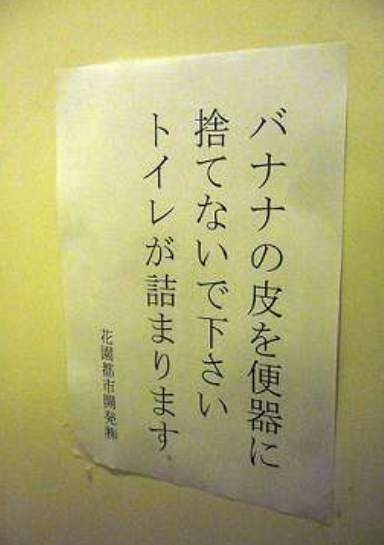 バナナの皮を便器に
捨てないで下さい
トイレが詰まります。
花園都市開発㈱